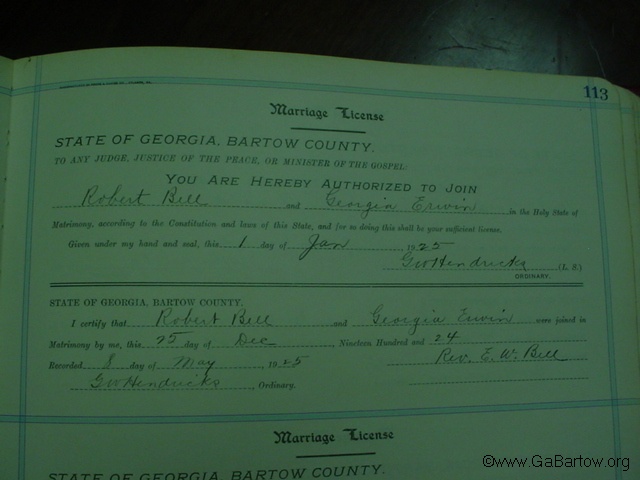 113
Marriage License
STATE OF GEORGIA, BARTOW COUNTY.
TO ANY JUDGE, JUSTICE OF THE PEACE, OR MINISTER OF THE GOSPEL:
YOU ARE HEREBY AUTHORIZED TO JOIN
Robert Bell and Georgia Erwin in the Holy State of
Matrimony, according to the Constitution and laws of this State, and for so doing this shall be your sufficient license.
Given under my hand and seal, this 1 day of Jan 1925
GW Hendricks (L. S.)
ORDINARY.
STATE OF GEORGIA, BARTOW COUNTY.
I certify that Robert Bell and Georgia Erwin were joined in
Matrimony by me, this 25 day of Dec Nineteen Hundred and 24
Recorded 8 day of May, 1925 Rev. E. W. Bell
GW Hendricks, Ordinary.
Marriage License
STATE OF GEORGIA, BARTOW COUNTY.
©www.GaBartow.org